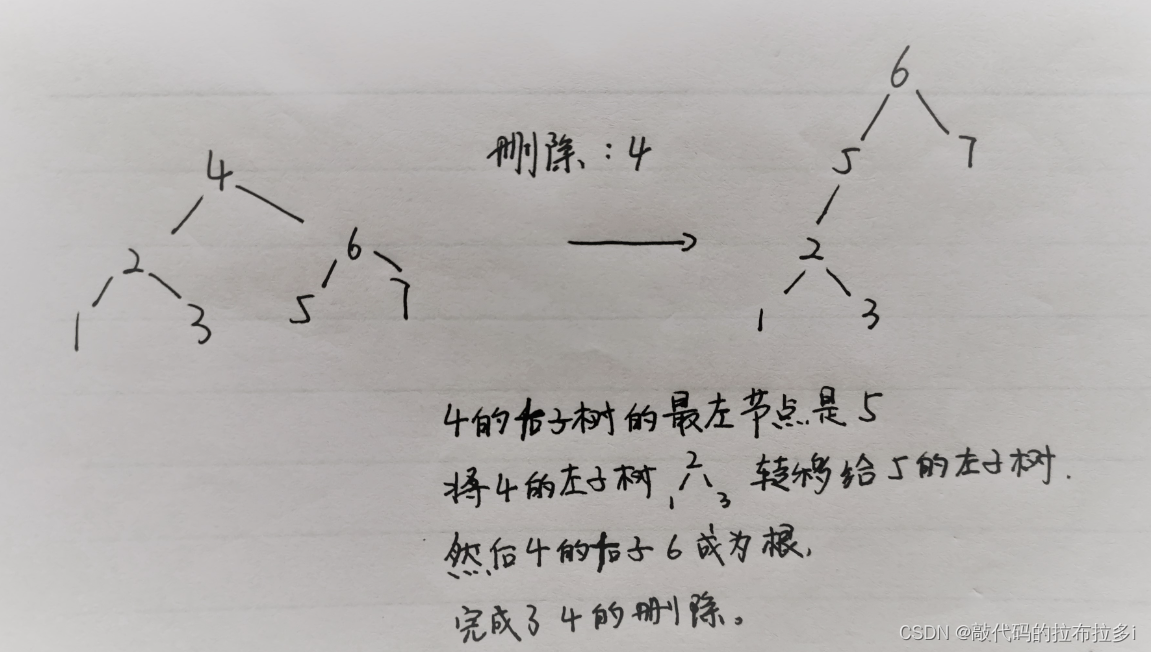 删除：4
4
2
6
1
3
5
7
6
5
7
2
1
3
4的右子树的最左节点是5
将4的左子树 2 1 3 转移给5的左子树.
然后4的右子6成为根,
完成了4的删除。
CSDN @敲代码的拉布拉多i